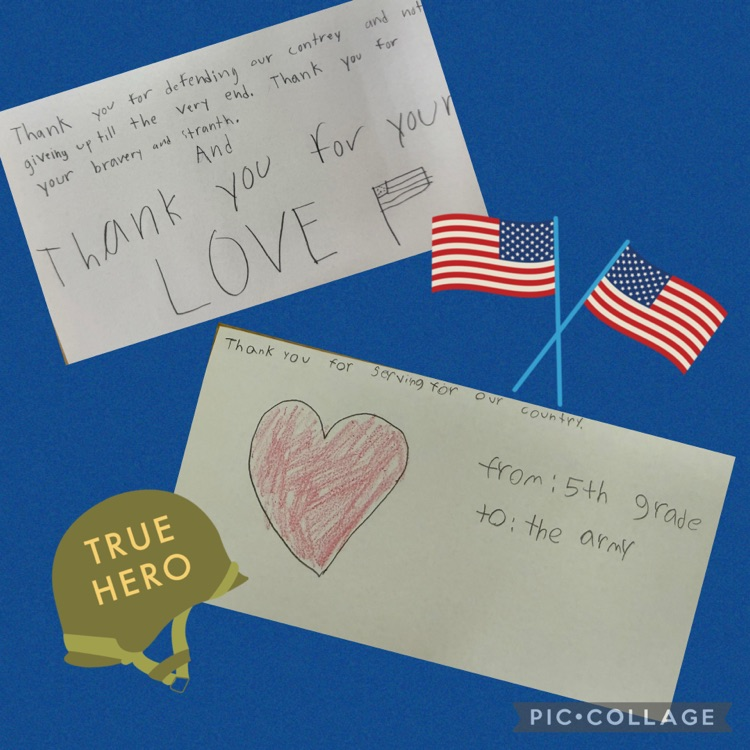 Thank you for defending our contrey and not
giveing up till the very end. Thank you for
your bravery and stranth.
And
Thank you for your
LOVE
Thank you for serving for our country.
from: 5th grade
to: the army
TRUE
HERO
PIC•COLLAGE